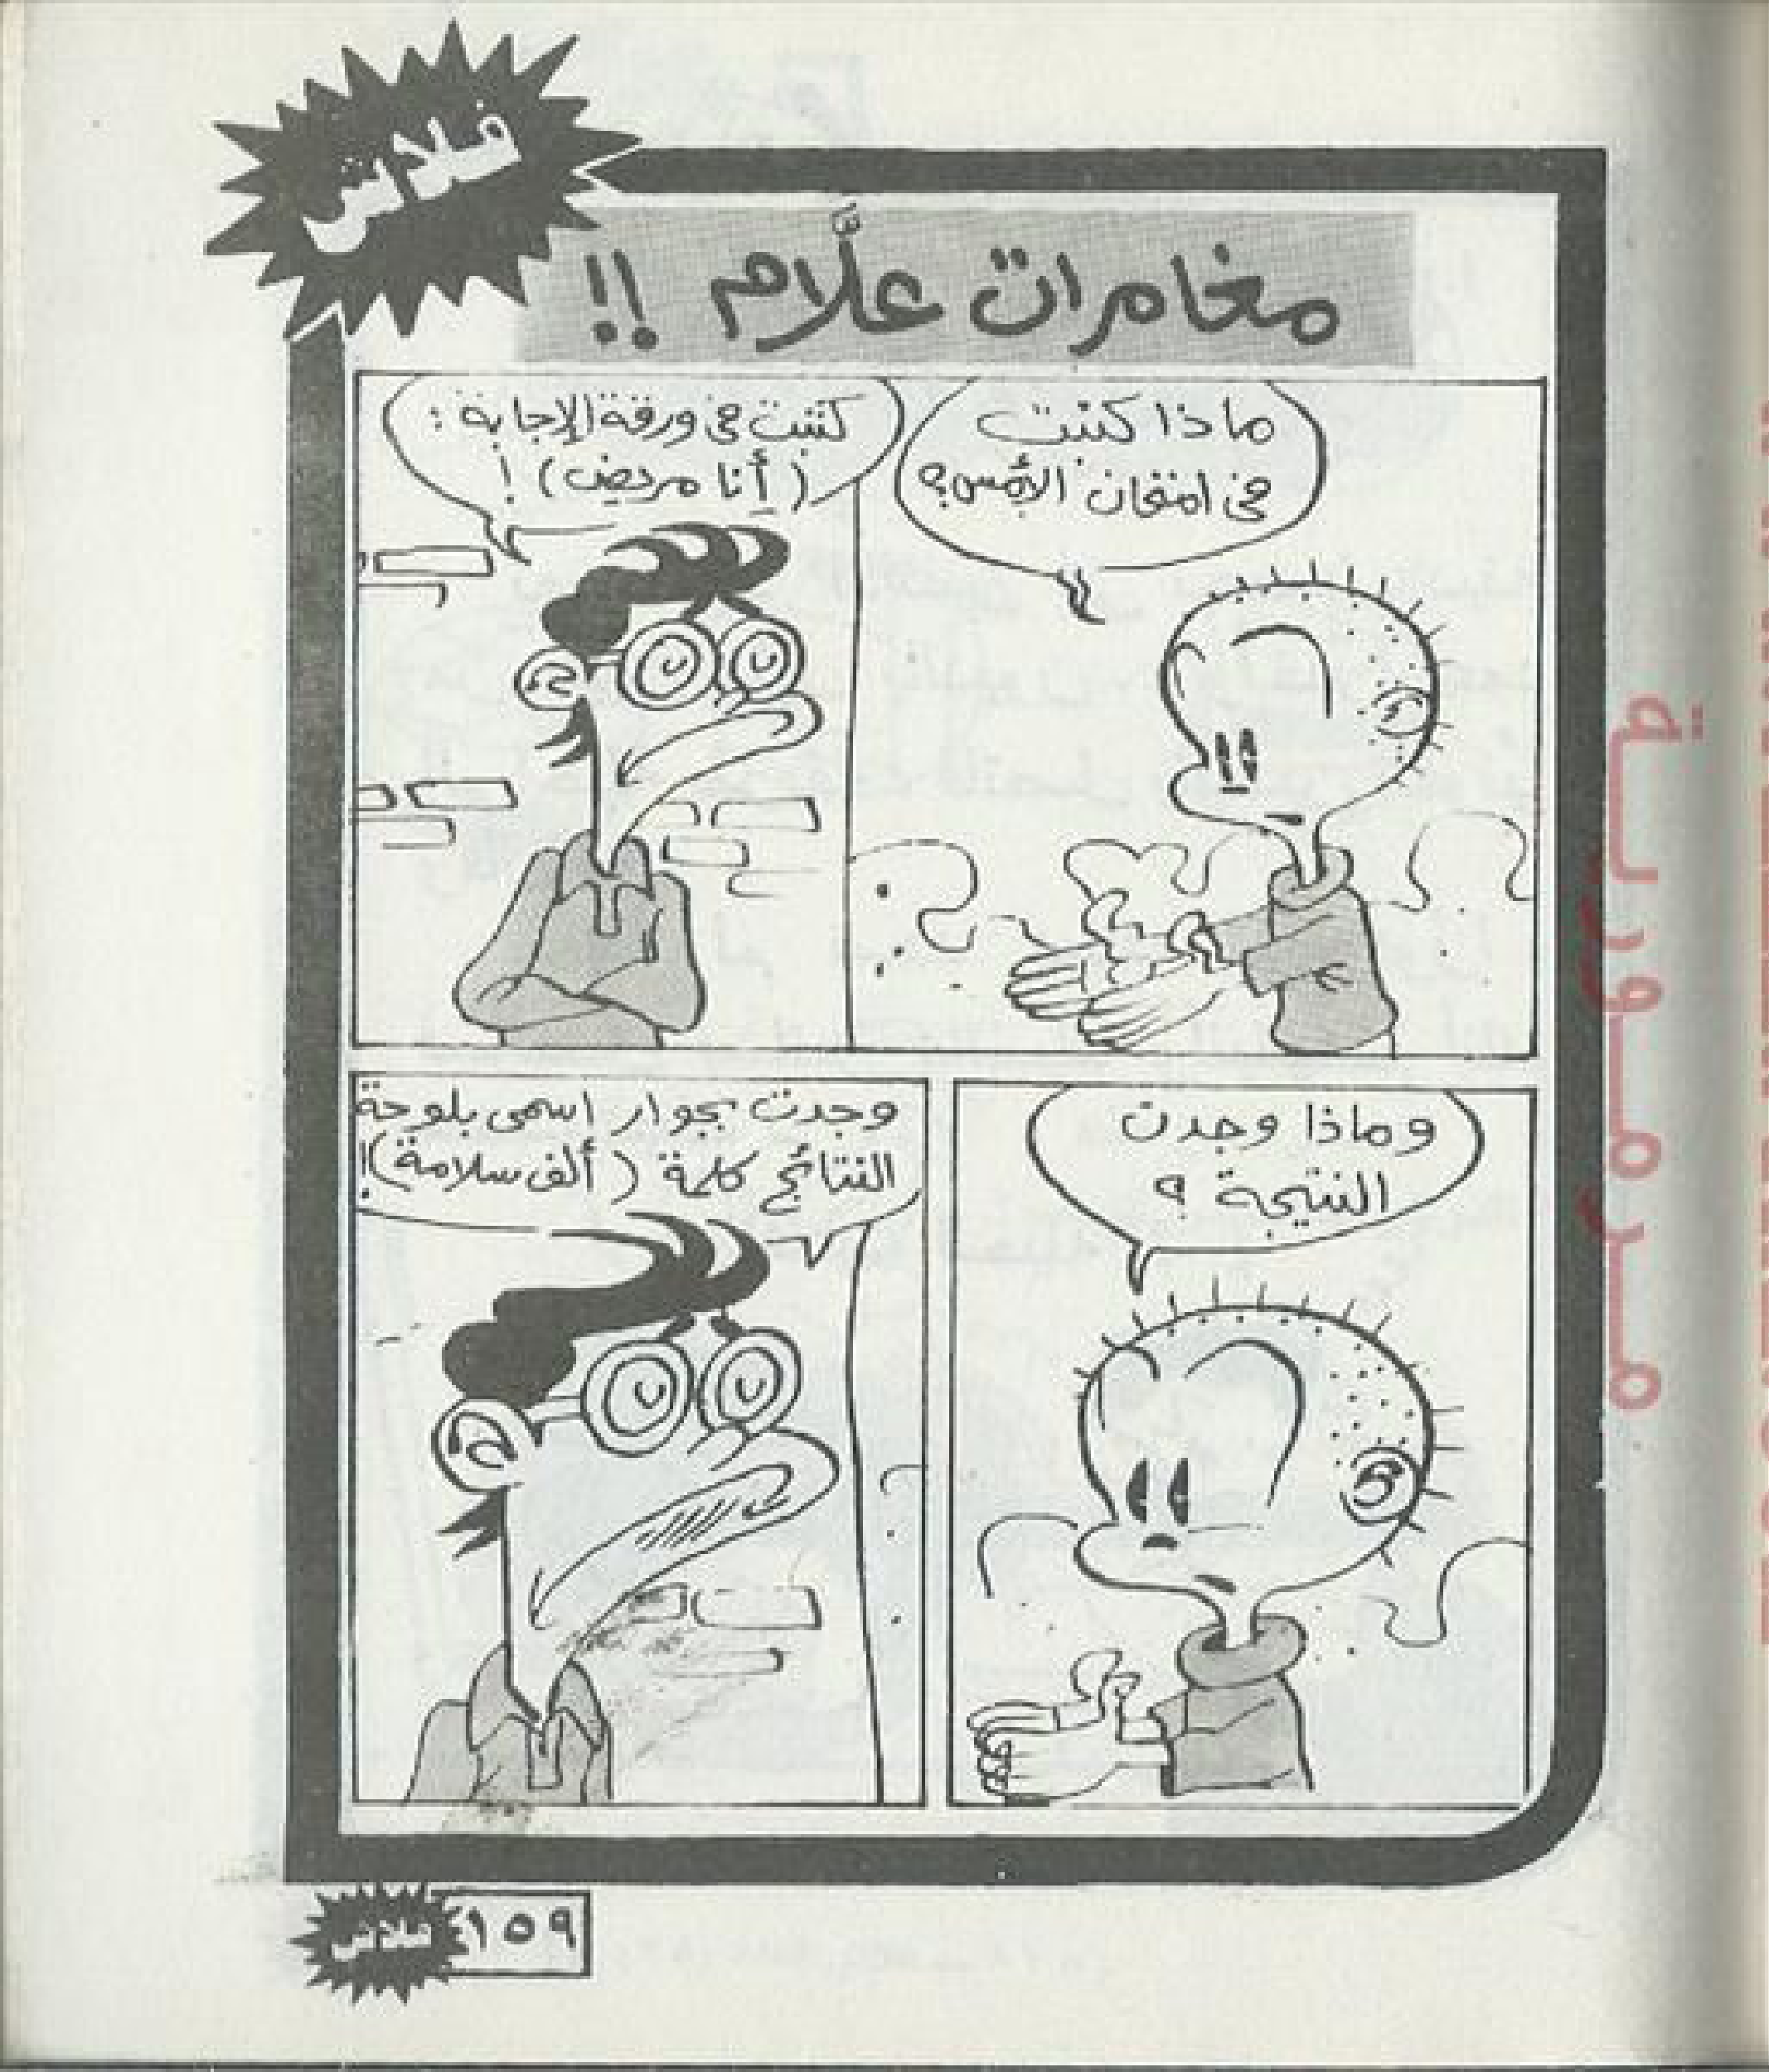 فلاش
مغامرات علَّام !!
ماذا كتبت
فى امتحان الأمس؟
كتبت فى ورقة الإجابة :
( أنا مريض ) !
وماذا وجدت
النتيجة ؟
وجدت بجوار اسمى بلوحة
النتائج كلمة ( ألف سلامة )!
فلاش
١٥٩
مرمورية